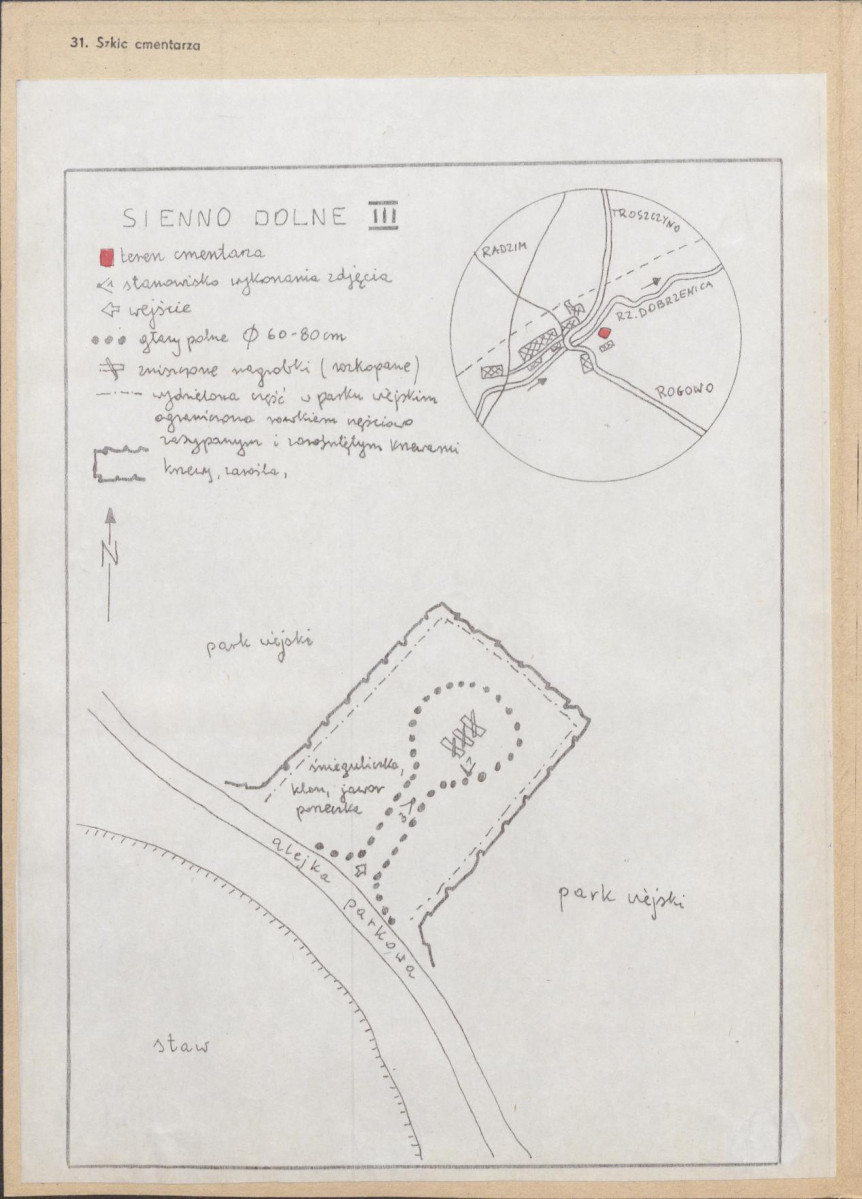 31. Szkic cmentarza
SIENNO DOLNE III
teren cmentarza
stanowisko wykonania zdjęcia
wejście
głazy polne Ø 60-80cm
zniszczone nagrobki (rozkopane)
wydzielona część w parku wiejskim
ograniczona rowkiem częściowo
zasypanym i zarośniętym krzewami
krzewy, zarośla,
RADZIM
TROSZCZYNO
RZ. DOBRZENICA
ROGOWO
N
park wiejski
śnieguliczka,
klon, jawor
porzeczka
2
3
alejka parkowa
park wiejski
staw